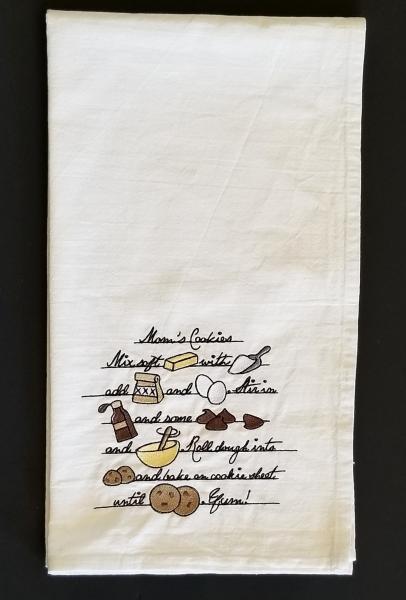 Mom's Cookies
Mix soft with
add XXX and . Stir in
and some
and . Roll dough into
and bake on cookie sheet
until . Yum!